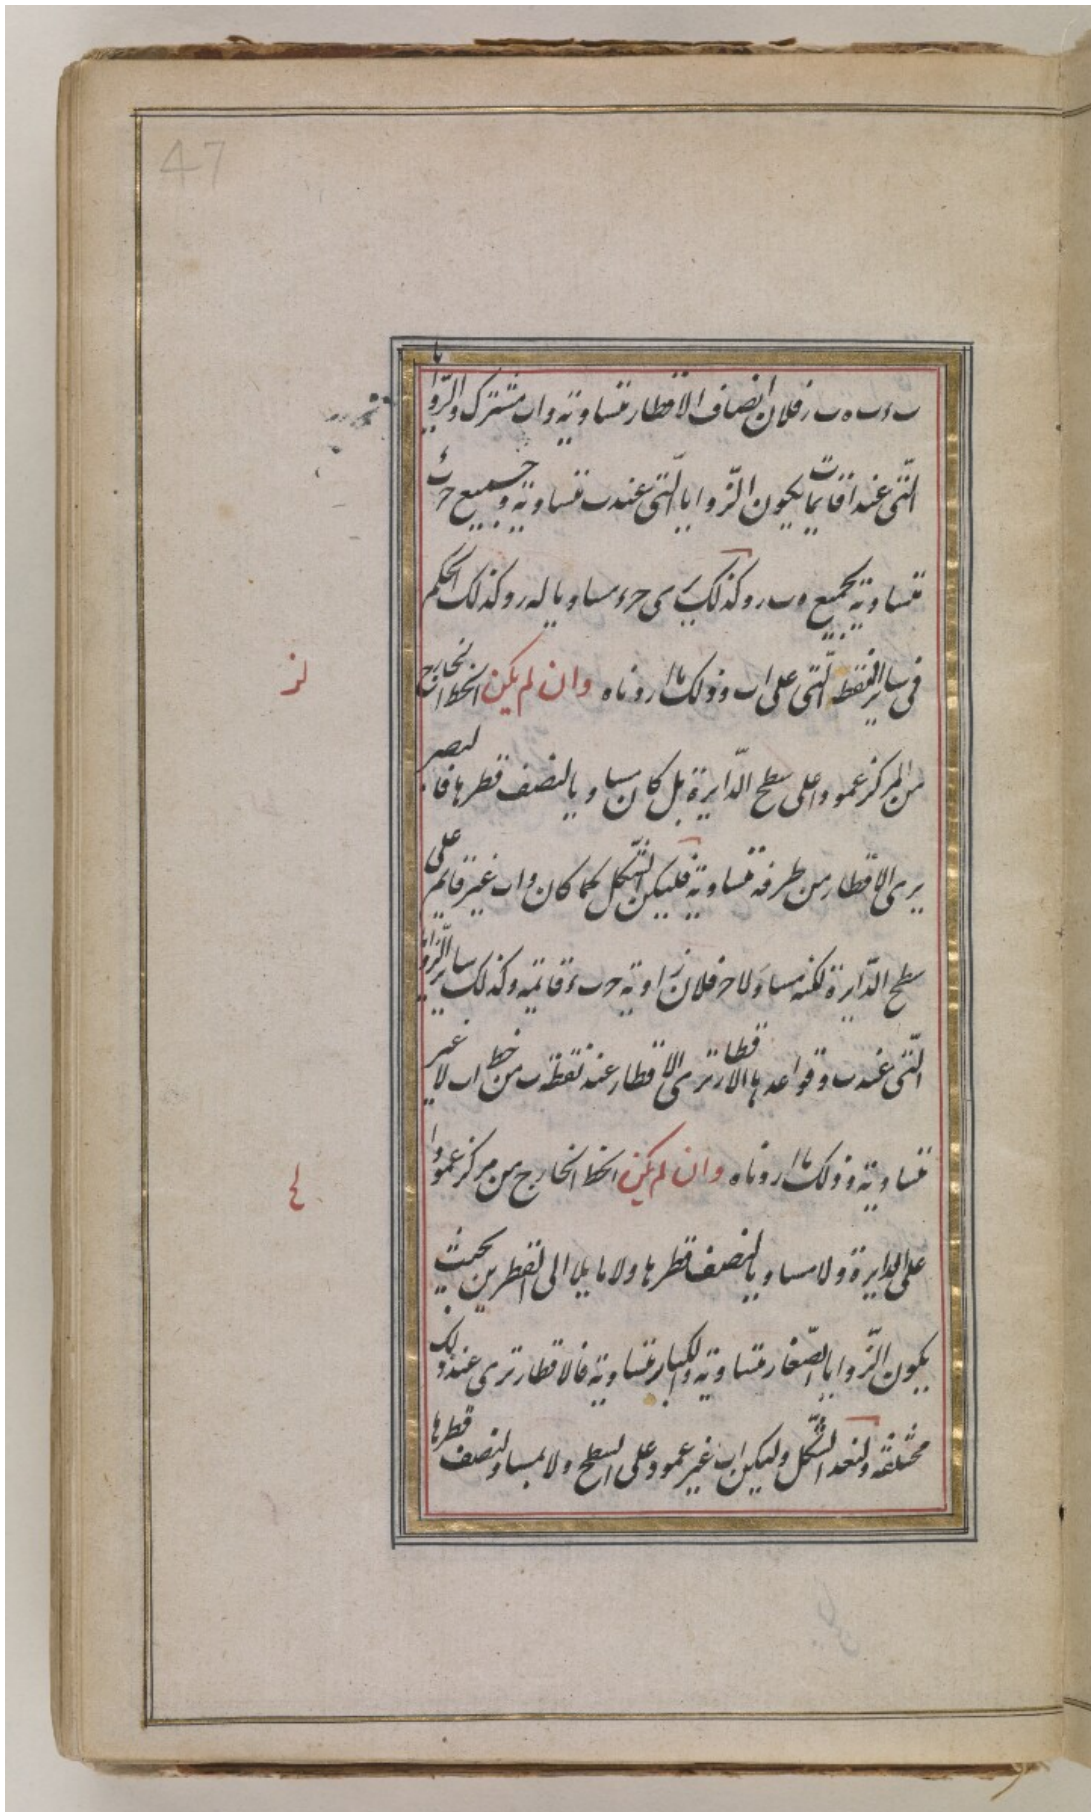 47
ب ء ب ه ب ر فلان انصاف الاقطار متساوية و اب مشترك والزوايا
الّتى عند ا قايمات يكون الزّوايا الّتى عند ب متساوية و جميع ح ب ء
متساوية لجميع ه ب ر وكذلك يرى ح ء مساويا له ر وكذلك الحكم
فى ساير النقط الّتى على اب وذلك ما اردناه وان لم يكن الخط الخارج
لز
من المركز عمودا على سطح الدّايرة بل كان مساويا لنصف قطرها فالبصر
يرى الاقطار من طرفه متساوية فليكن الشّكل كما كان و اب غير قايم على
سطح الدّايرة لكنه مساو لاح فلان زاوية ح ب ء قائمة وكذلك ساير الزّوايا
الّتى عند ب وقواعدها الاقطار ترى الاقطار عند نقطة ب من خط اب لا غير
متساوية وذلك ما اردناه وان لم يكن الخط الخارج من مركز عمودا
لح
على الدايرة ولا مساويا لنصف قطرها ولا مايلا الى القطرين بحيث
يكون الزّوايا الصّغار متساوية والكبار متساوية فالاقطار ترى عند ذلك
مختلفة ولنعد الشّكل وليكن اب غير عمود على السطح ولا بمساو لنصف قطرها